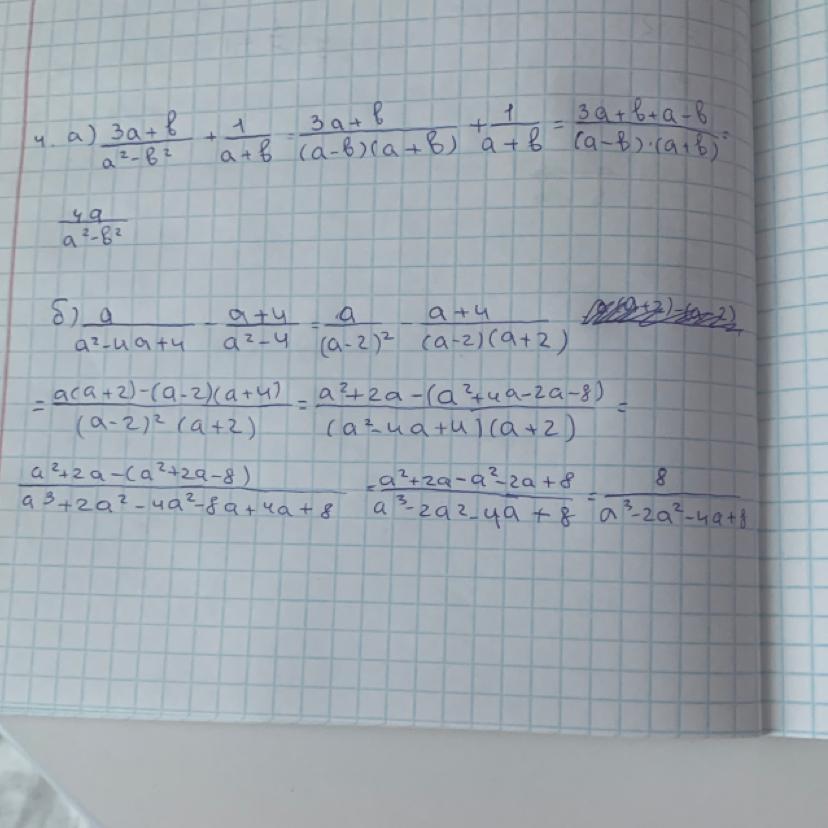 4. а) (3a+b)/(a²-b²) + 1/(a+b) = (3a+b)/((a-b)(a+b)) + 1/(a+b) = (3a+b+a-b)/((a-b)·(a+b)) =
4a/(a²-b²)
б) a/(a²-4a+4) - (a+4)/(a²-4) = a/(a-2)² - (a+4)/((a-2)(a+2))
= (a(a+2)-(a-2)(a+4))/((a-2)²(a+2)) = (a²+2a-(a²+4a-2a-8))/((a²-4a+4)(a+2)) =
(a²+2a-(a²+2a-8))/(a³+2a²-4a²-8a+4a+8) = (a²+2a-a²-2a+8)/(a³-2a²-4a+8) = 8/(a³-2a²-4a+8)